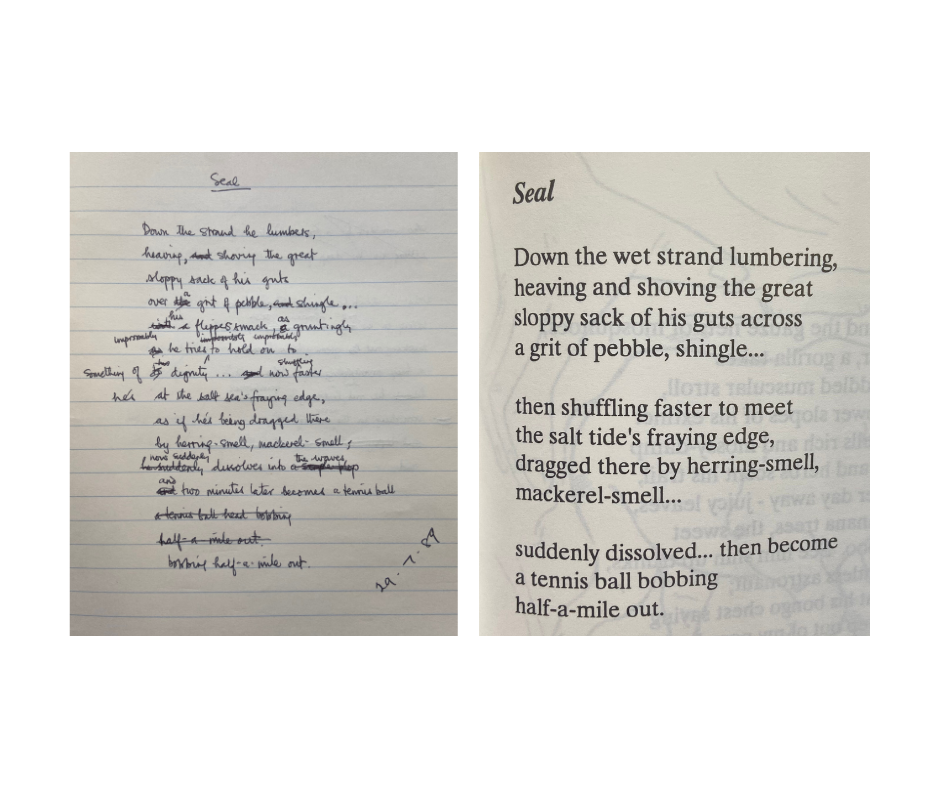 Seal
Down the strand he lumbers,
heaving, and shoving the great
sloppy sack of his guts
a
over the grit of pebble, and shingle...
his as
a flipper smack, a gruntingly
improbably improbably improbably
he tries to hold on to
two shuffling
something of dignity ... and now faster
he's at the salt sea's fraying edge,
as if he's being dragged there
by herring-smell, mackerel-smell,
now suddenly the waves,
he suddenly dissolves into a
and
and two minutes later becomes a tennis ball
a tennis ball head bobbing
half-a-mile out.
bobbing half-a-mile out.
Seal
Down the wet strand lumbering,
heaving and shoving the great
sloppy sack of his guts across
a grit of pebble, shingle...
then shuffling faster to meet
the salt tide's fraying edge,
dragged there by herring-smell,
mackerel-smell...
suddenly dissolved... then become
a tennis ball bobbing
half-a-mile out.